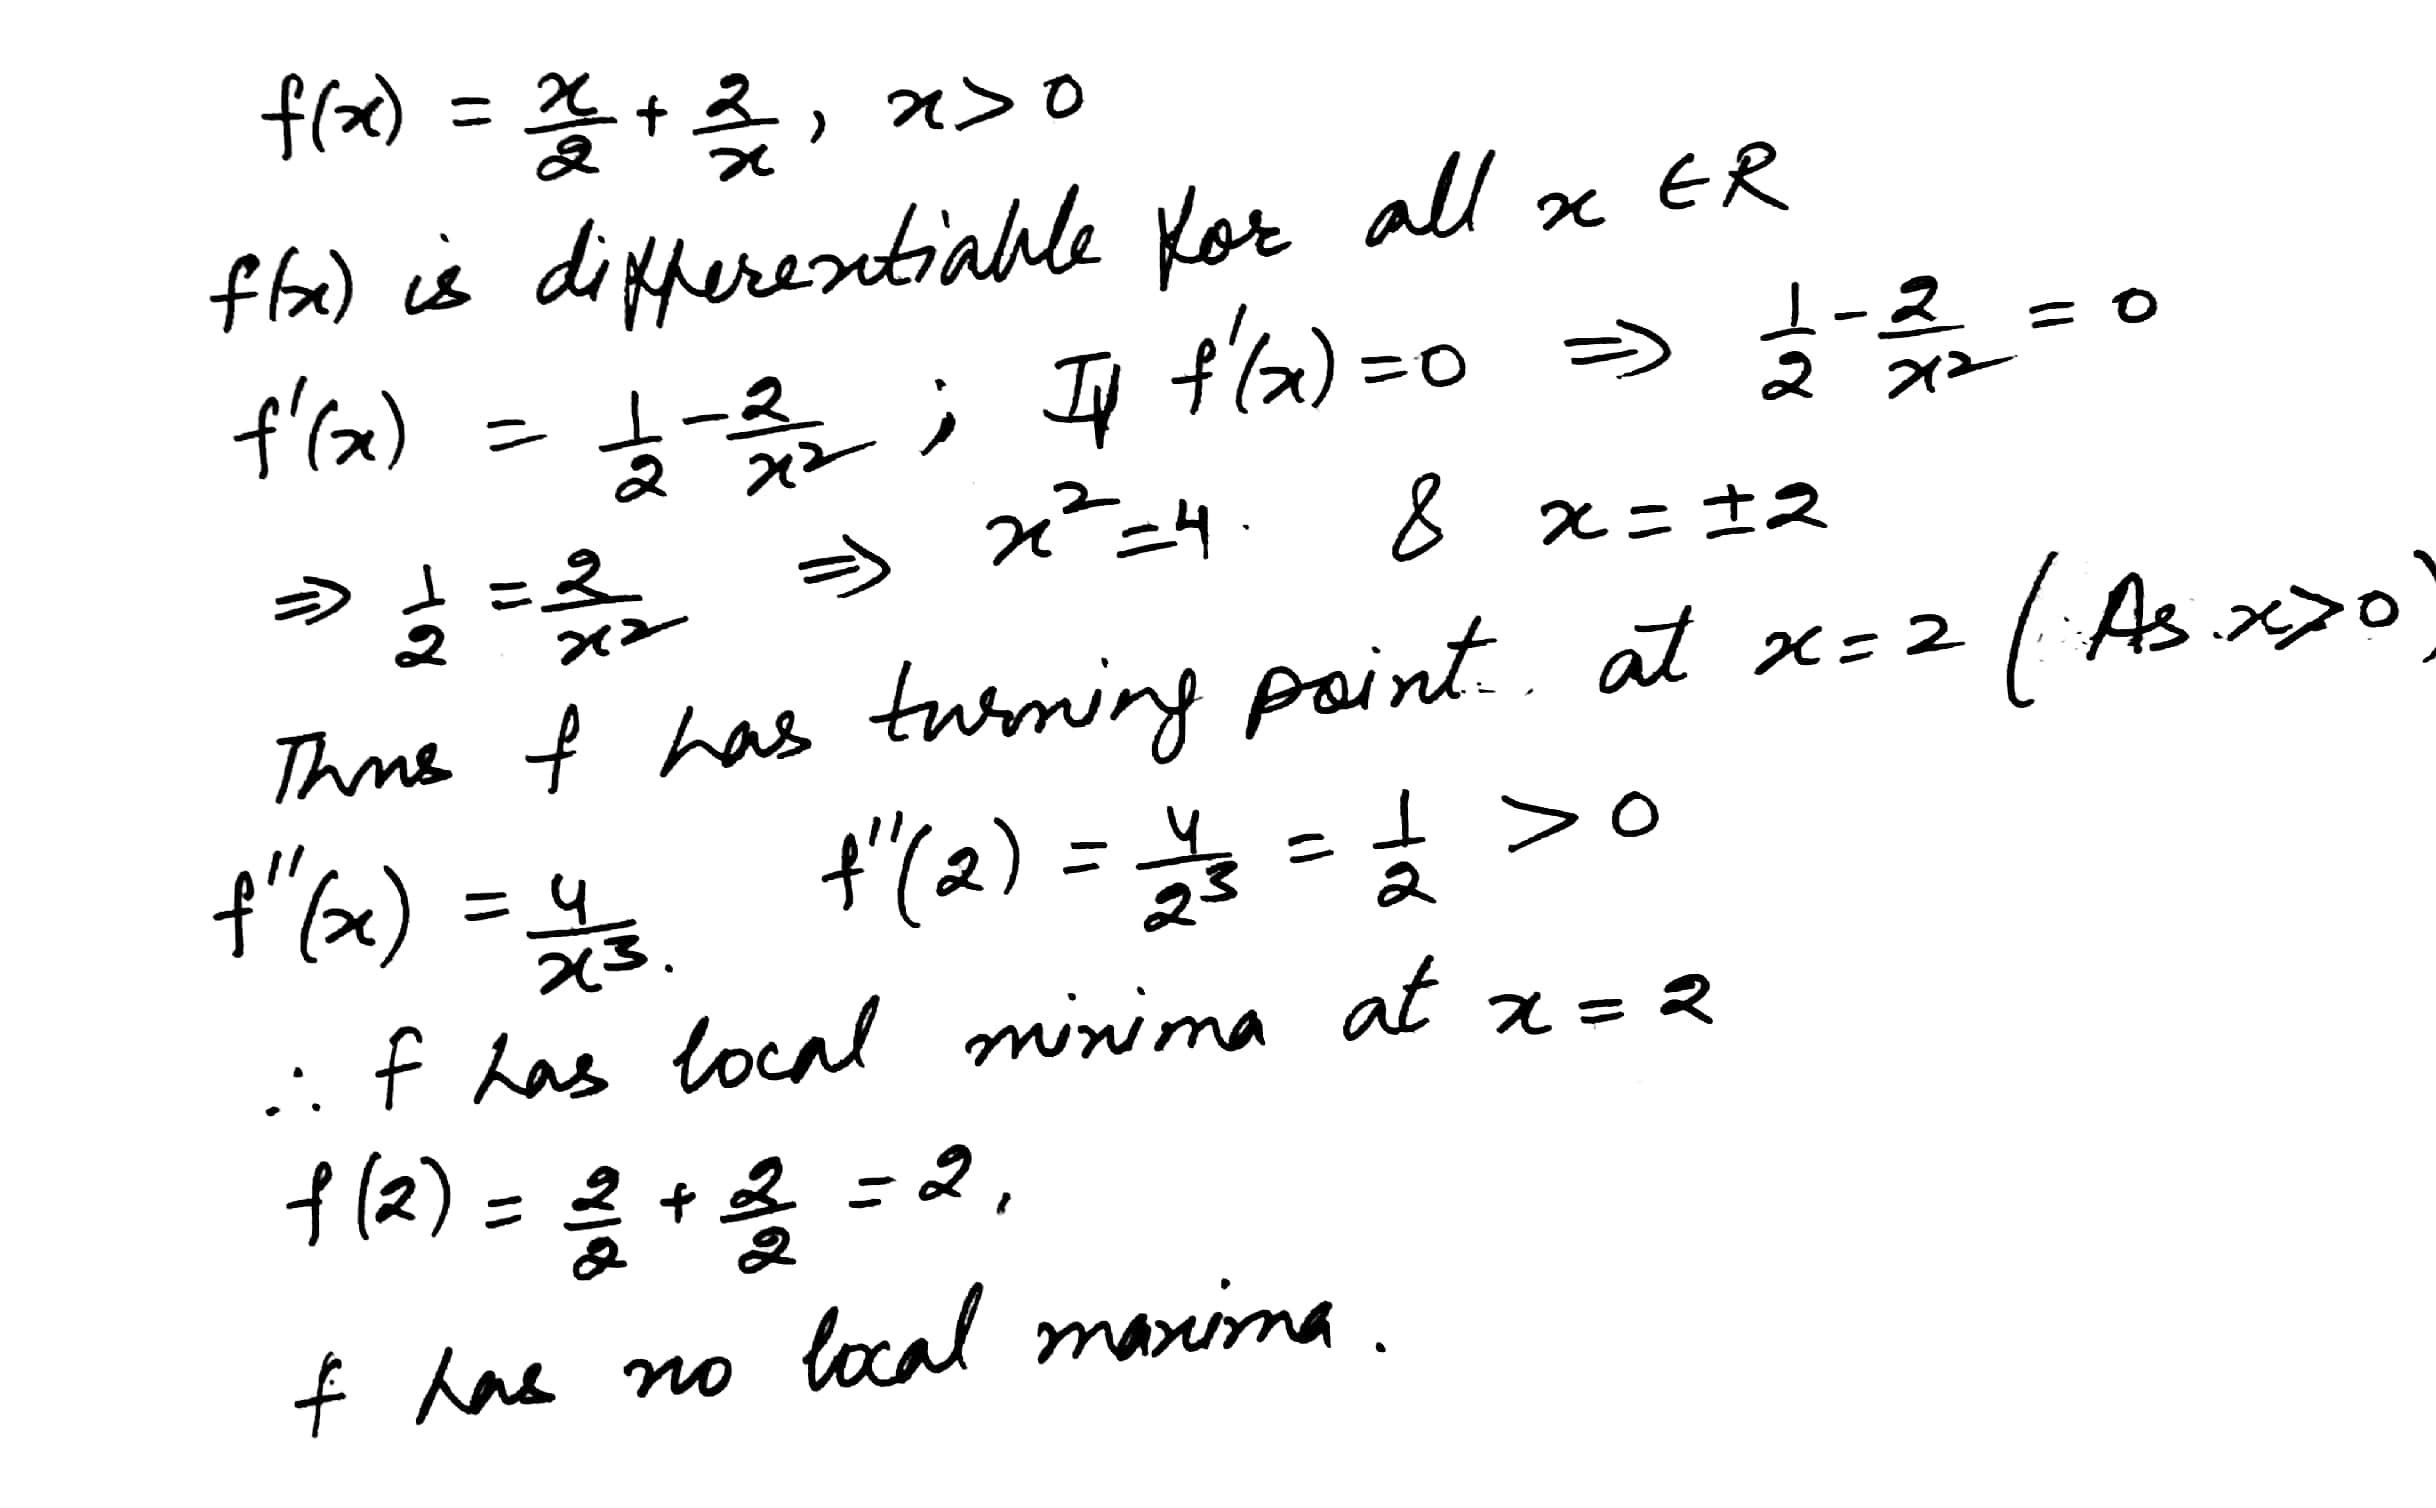 f(x) = x/2 + 2/x, x > 0
f(x) is differentiable for all x ∈ R
f'(x) = 1/2 - 2/x² ; If f'(x) = 0 ⇒ 1/2 - 2/x² = 0
⇒ 1/2 = 2/x² ⇒ x² = 4. & x = ±2
Thus f has turning point at x = 2 (As x > 0)
f''(x) = 4/x³. f''(2) = 4/2³ = 1/2 > 0
∴ f has local minima at x = 2
f(2) = 2/2 + 2/2 = 2,
f has no local maxima.